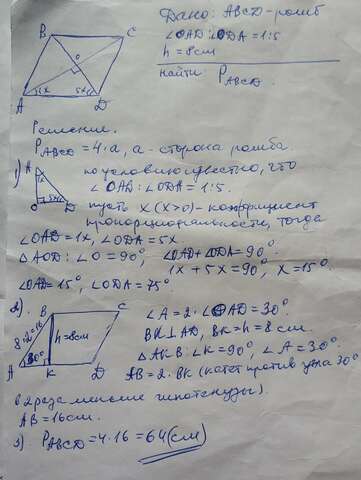 Дано: ABCD-ромб
∠OAD:∠ODA = 1:5
h = 8см
Найти: P_ABCD
B C
O
1x 5x
A D
Решение.
P_ABCD = 4·a, a - сторона ромба.
1) по условию известно, что
∠OAD : ∠ODA = 1:5.
A
1x
O 5x D
пусть x (x>0) - коэффициент
пропорциональности, тогда
∠OAD = 1x, ∠ODA = 5x
△AOD: ∠O = 90°, ∠OAD + ∠ODA = 90°
1x + 5x = 90°, x = 15°
∠OAD = 15°, ∠ODA = 75°
2) B C
∠A = 2·∠OAD = 30°
8·2=16 h=8см
BK⊥AD, BK = h = 8 см
A 30° K D
△AKB: ∠K = 90°, ∠A = 30°
AB = 2·BK (катет против угла 30°
в 2 раза меньше гипотенузы).
AB = 16см.
3) P_ABCD = 4·16 = 64(см)